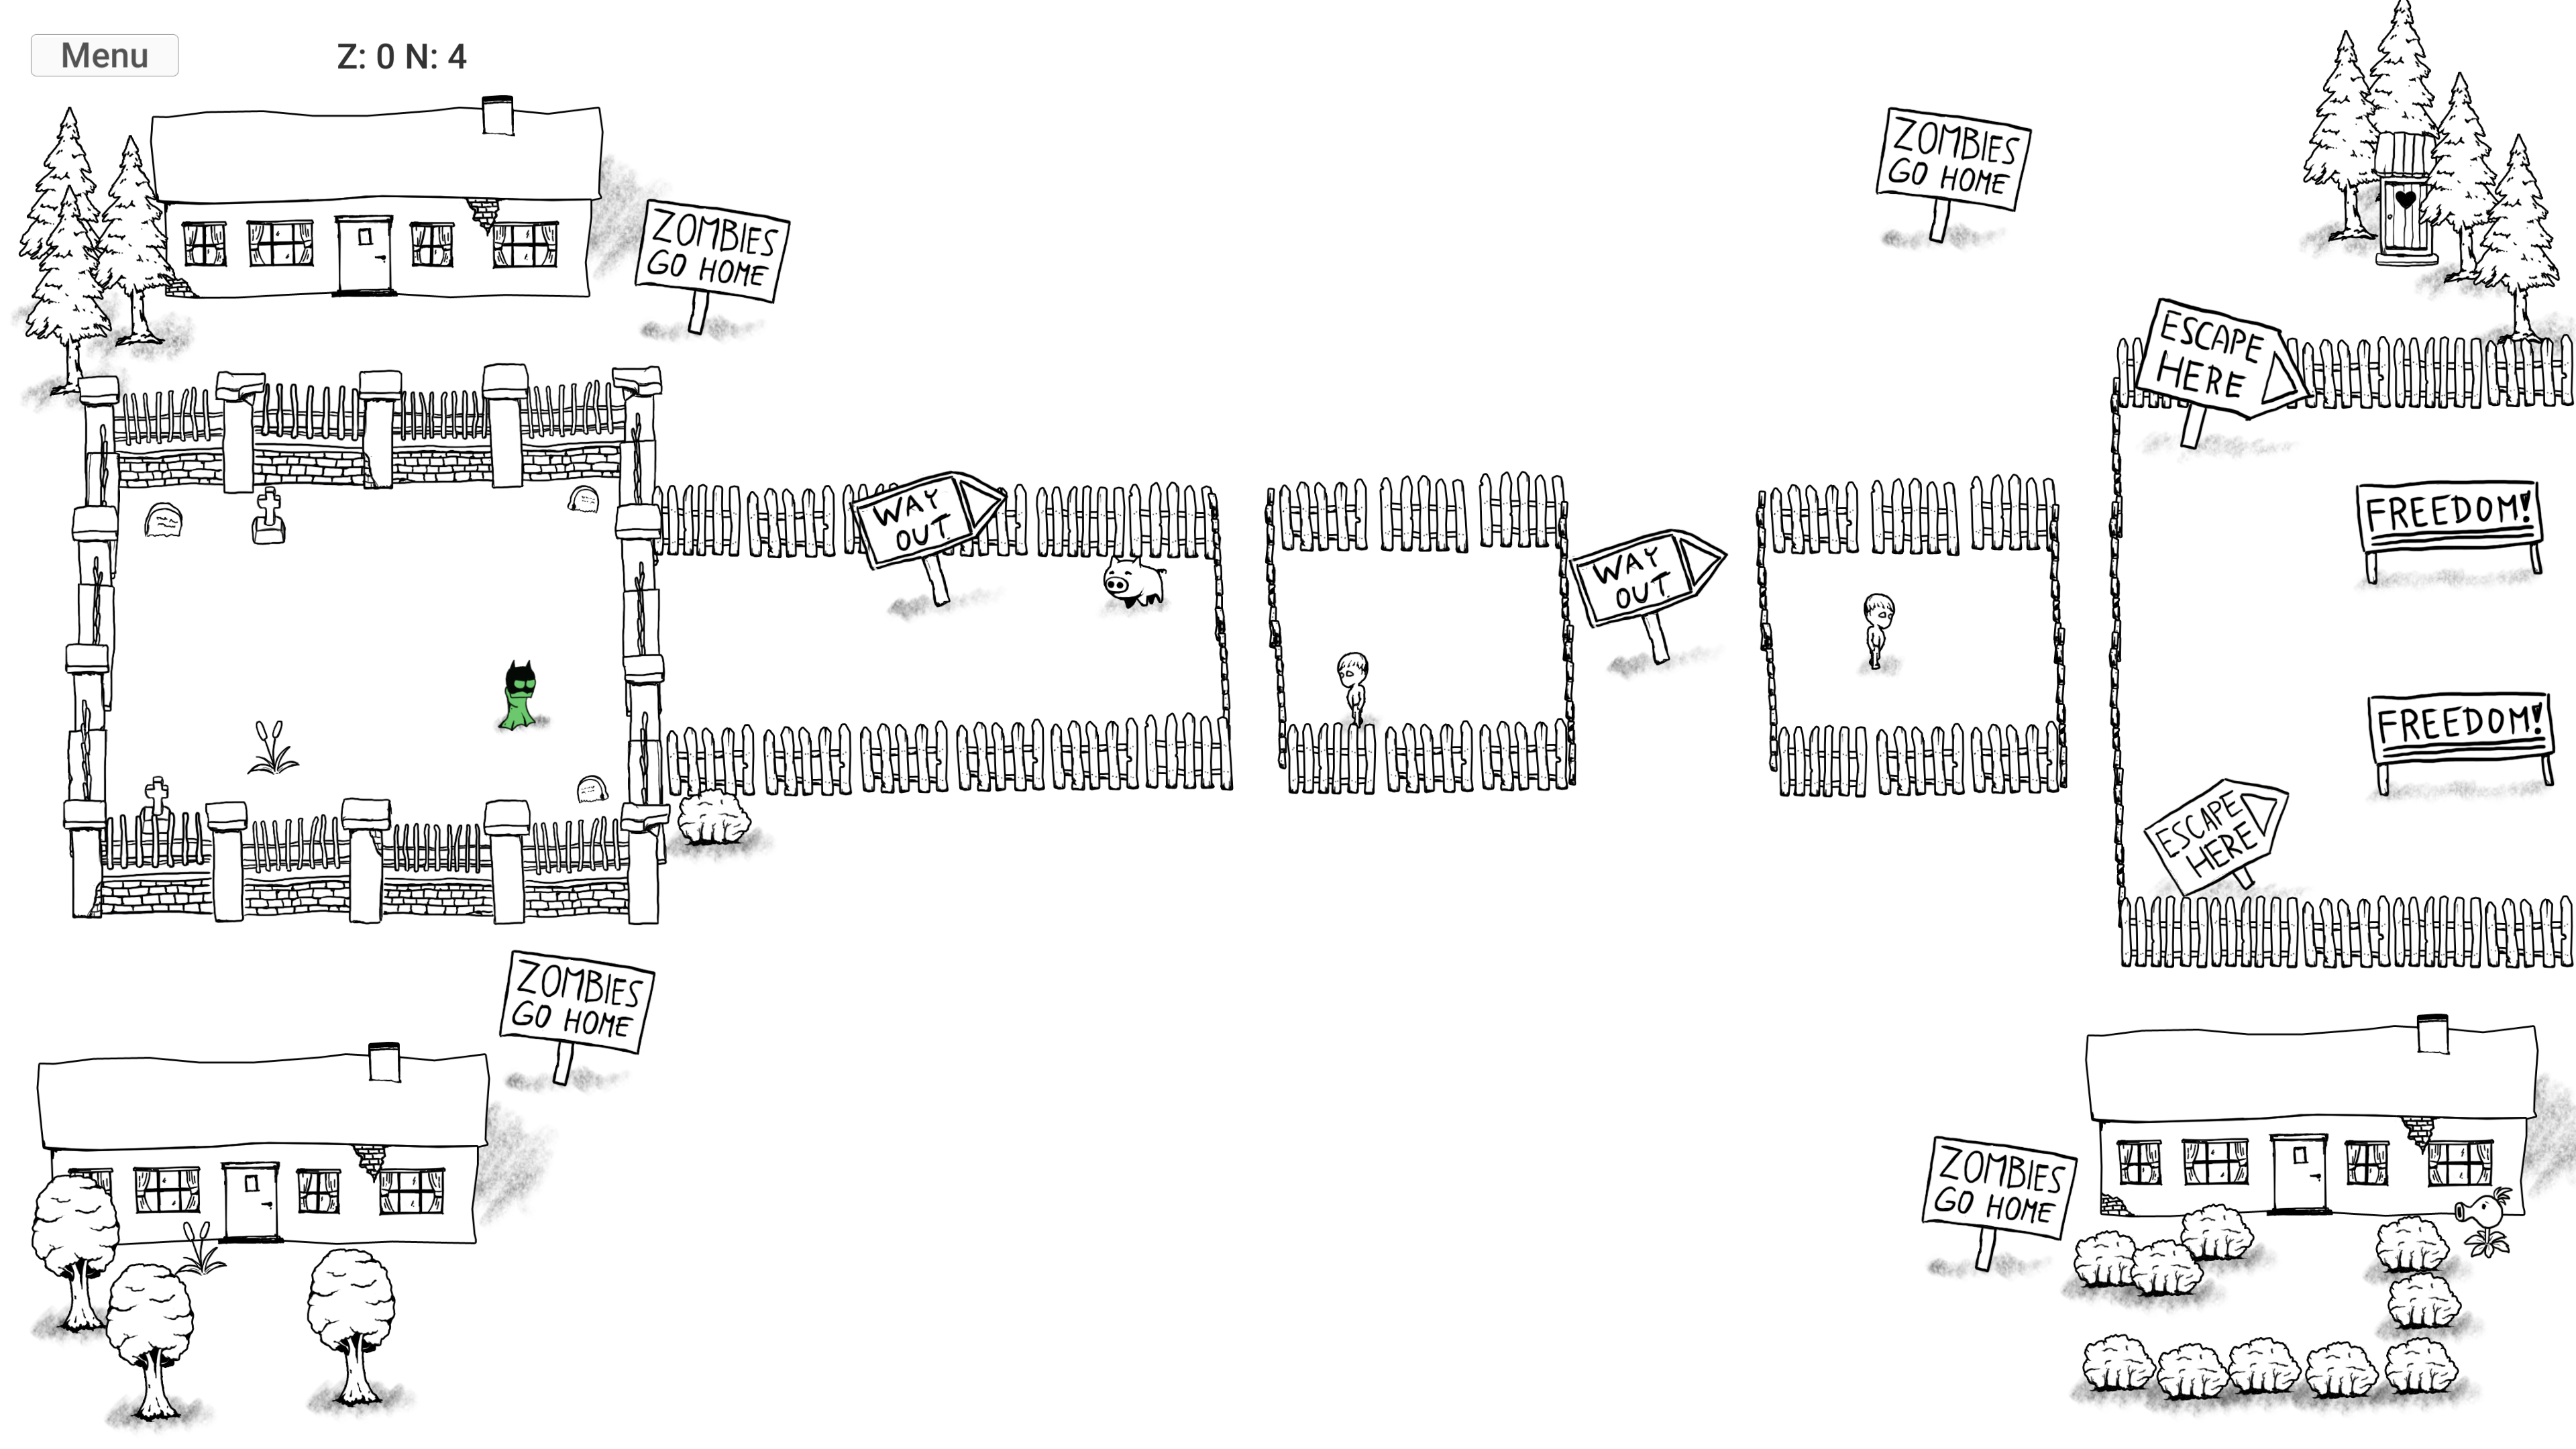 Menu
Z: 0 N: 4
ZOMBIES
GO HOME
ZOMBIES
GO HOME
ESCAPE
HERE
WAY
OUT
WAY
OUT
FREEDOM!
FREEDOM!
ESCAPE
HERE
ZOMBIES
GO HOME
ZOMBIES
GO HOME